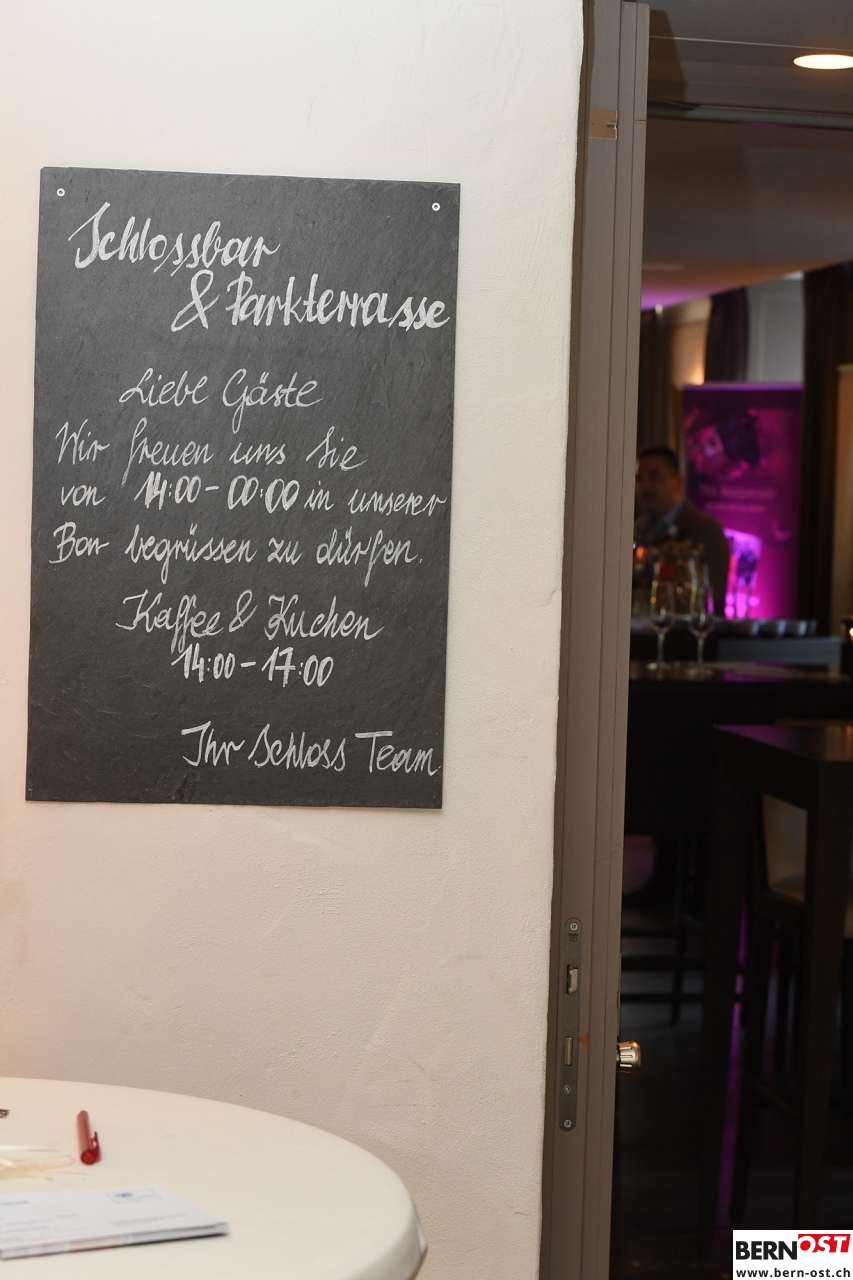 Schlossbar
& Parkterrasse
Liebe Gäste
Wir freuen uns Sie
von 14:00-00:00 in unserer
Bar begrüssen zu dürfen.
Kaffee & Kuchen
14:00-17:00
Ihr Schloss Team
BERNOST
www.bern-ost.ch